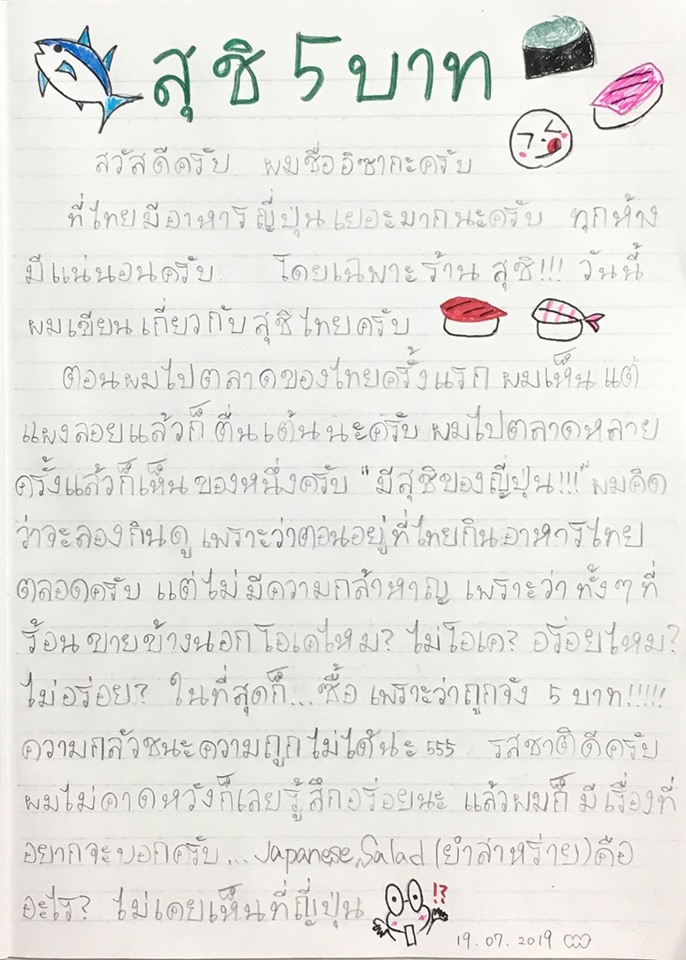 สุชิ 5 บาท
สวัสดีครับ ผมชื่ออิซากะครับ
ที่ไทยมีอาหารญี่ปุ่นเยอะมากนะครับ ทุกห้าง
มีแน่นอนครับ โดยเฉพาะร้าน สุชิ!!! วันนี้
ผมเขียนเกี่ยวกับสุชิไทยครับ
ตอนผมไปตลาดของไทยครั้งแรก ผมเห็นแต่
แผงลอยแล้วก็ตื่นเต้นนะครับ ผมไปตลาดหลาย
ครั้งแล้วก็เห็นของหนึ่งครับ "มีสุชิของญี่ปุ่น!!!" ผมคิด
ว่าจะลองกินดู เพราะว่าตอนอยู่ที่ไทยกินอาหารไทย
ตลอดครับ แต่ไม่มีความกล้าหาญ เพราะว่า ทั้งๆที่
ร้อนขายข้างนอกโอเคไหม? ไม่โอเค? อร่อยไหม?
ไม่อร่อย? ในที่สุดก็...ซื้อ เพราะว่าถูกจัง 5 บาท!!!!!
ความกลัวชนะความถูกไม่ได้น่ะ 555 รสชาติดีครับ
ผมไม่คาดหวังก็เลยรู้สึกอร่อยนะ แล้วผมก็มีเรื่องที่
อยากจะบอกครับ... Japanese Salad (ยำสาหร่าย)คือ
อะไร? ไม่เคยเห็นที่ญี่ปุ่น !?
19.07.2019